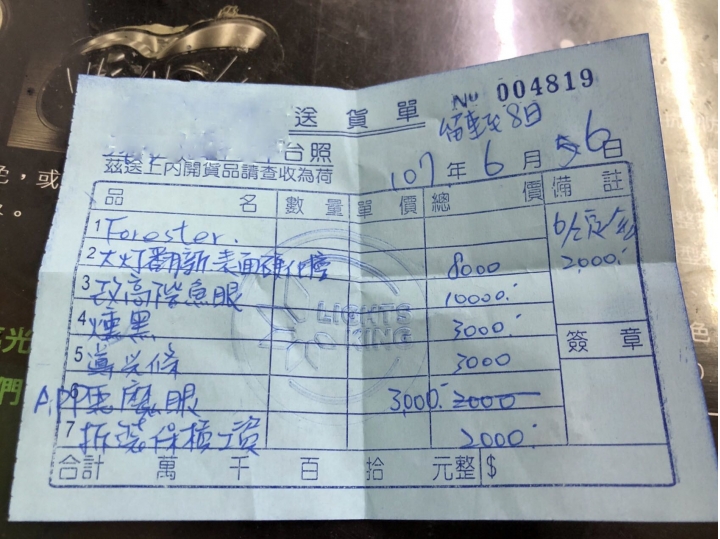 № 004819
送貨單
留車至8日
台照
茲送上內開貨品請查收為荷
107年6月6日
品名 數量 單價 總價 備註
1 Forester.
2 大灯翻新.表面硬化膜 8000
3 改高階魚眼 10000.
4 燻黑 3000
5 導光條 3000
6 APP惡魔眼 3,000. 2000
7 拆裝保桿工資 2000.
6/2
2,000.
LIGHTS
KING
簽章
合計 萬 千 百 拾 元整 $
色，或
光
們